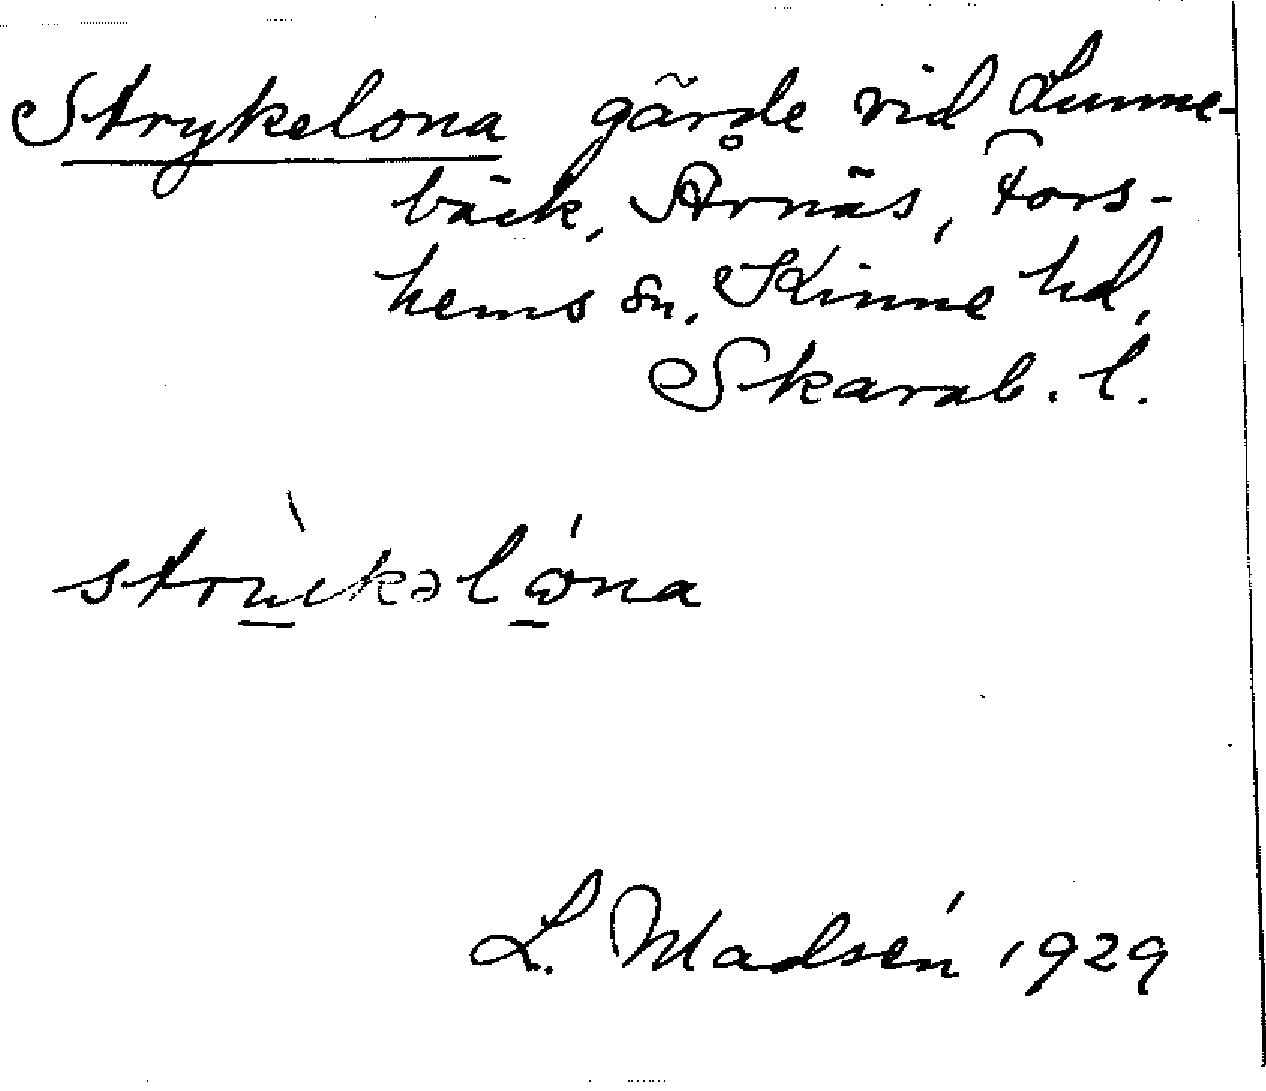 Strykelona gärde vid Lunne-
bäck, Årnäs, Fors-
hems sn, Kinne hd,
Skarab. l.
L. Madsén 1929